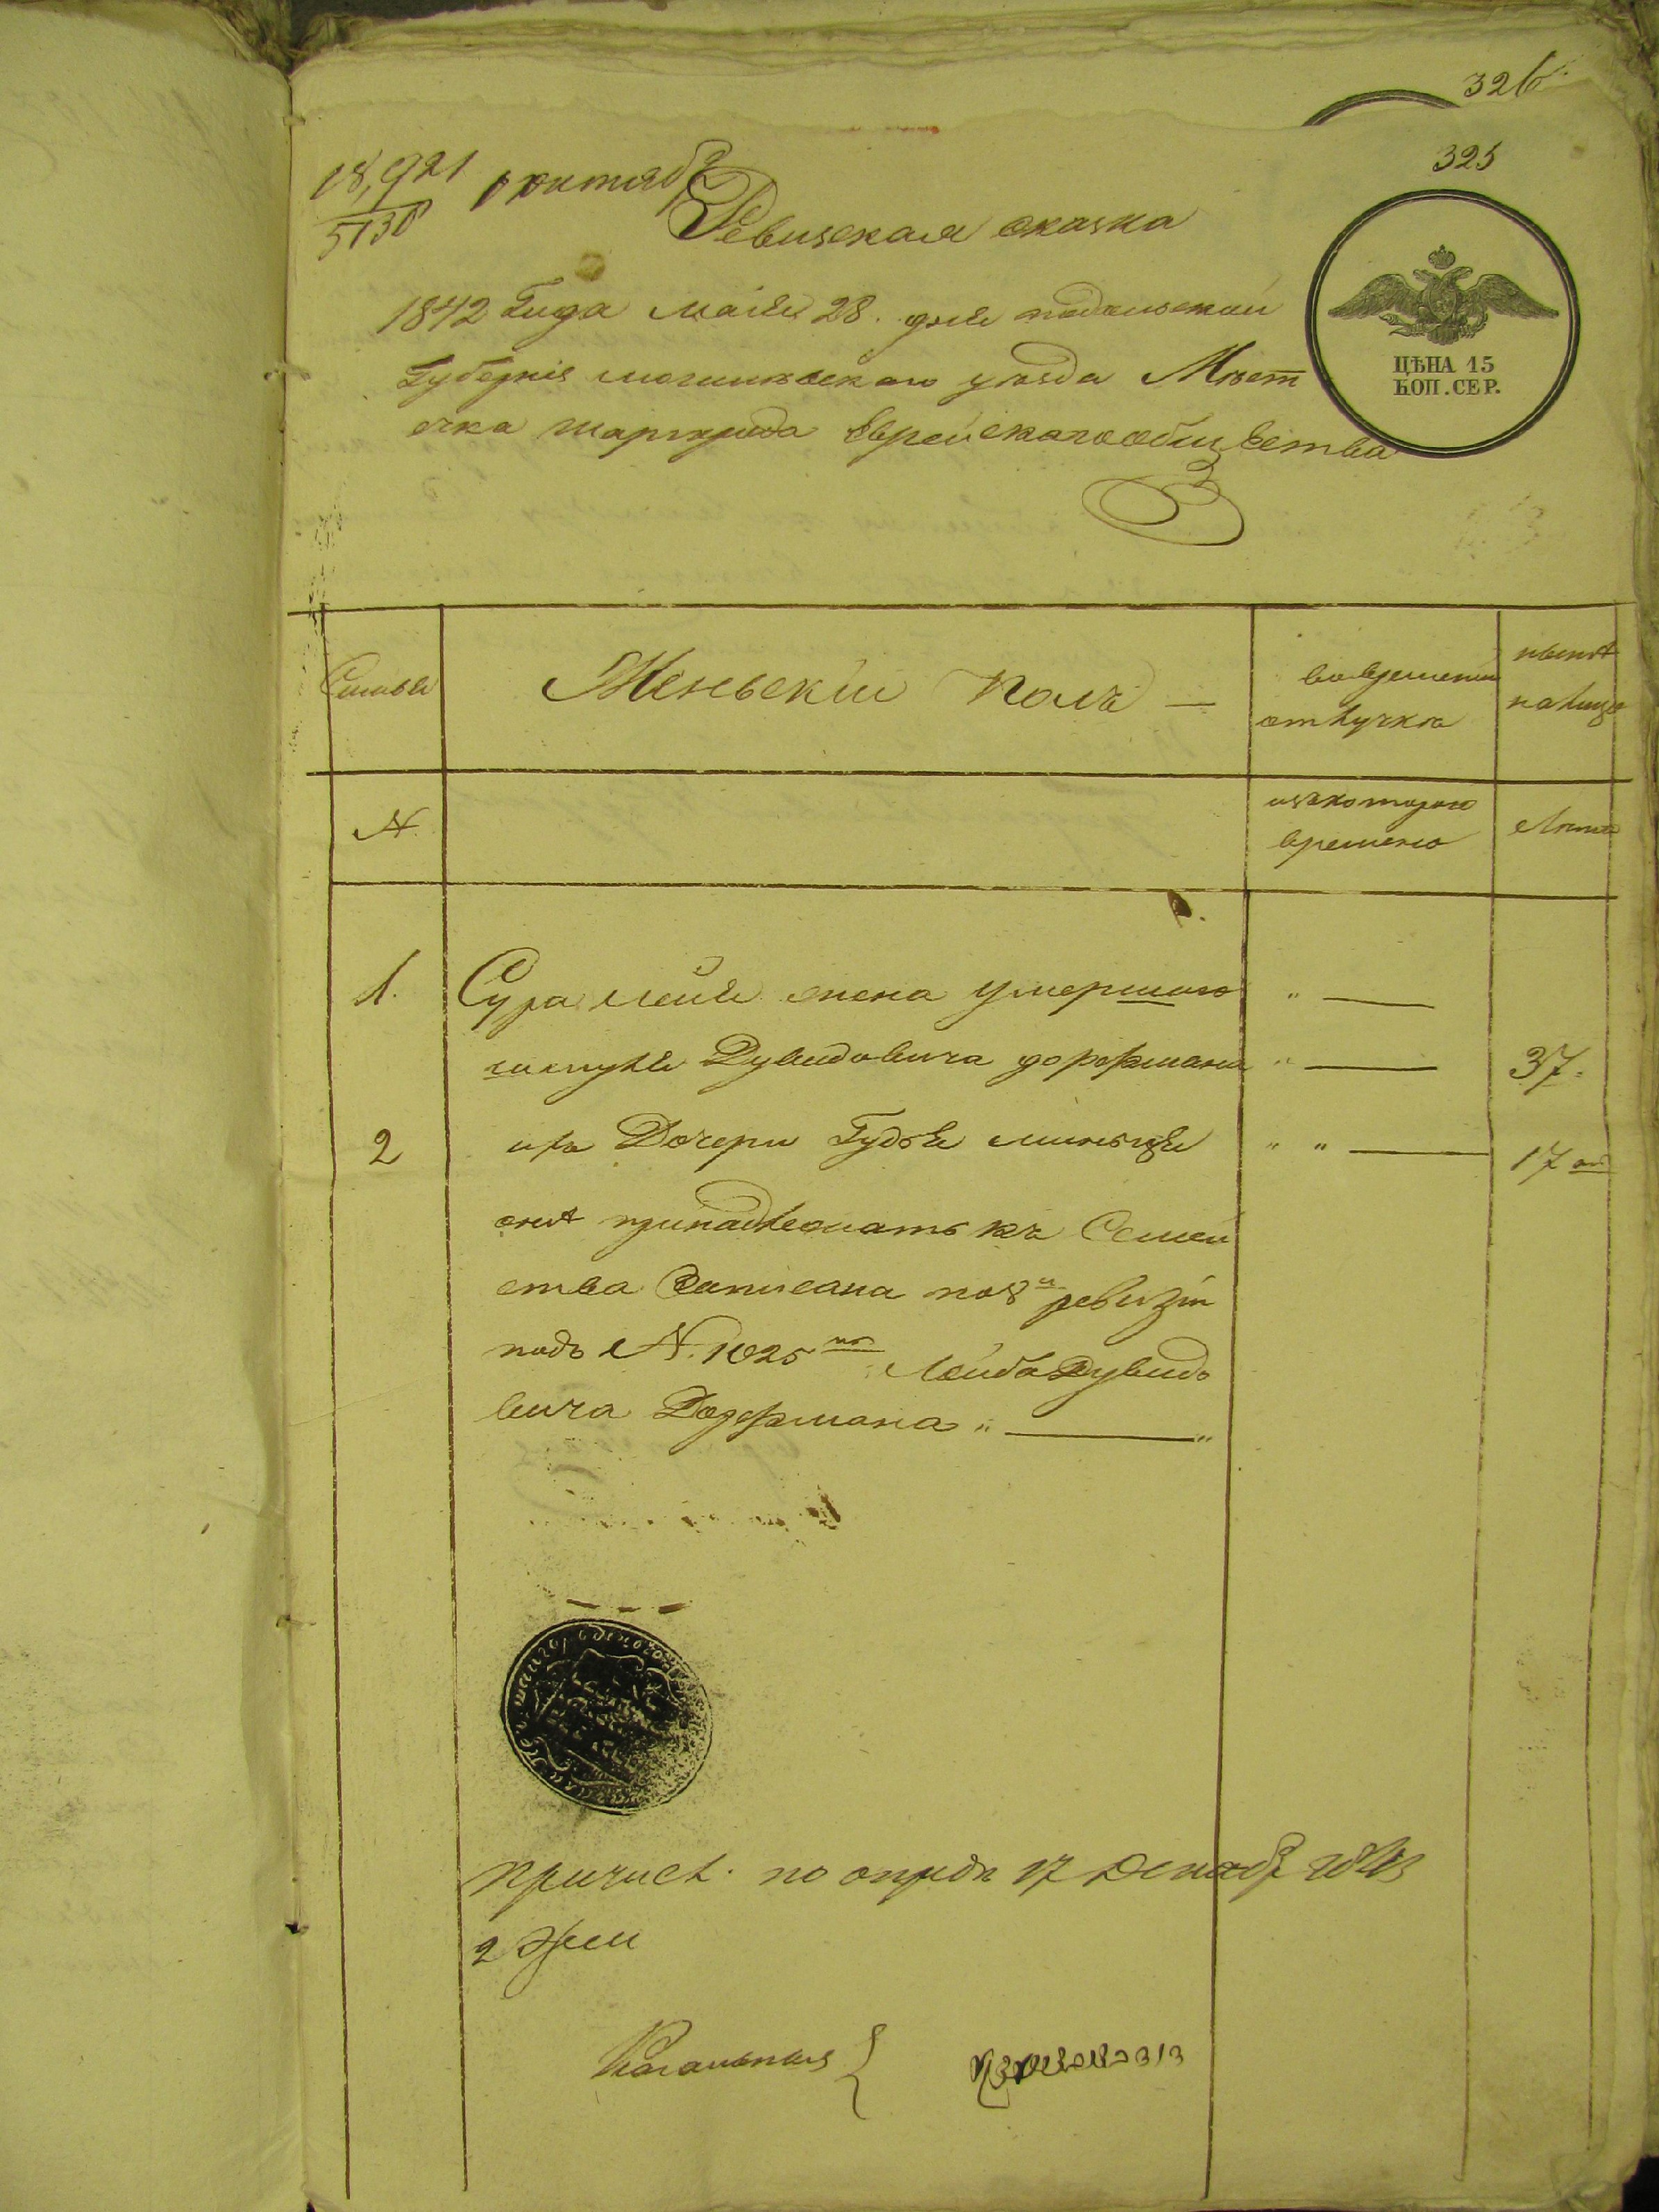 326
325
18,921 1 октябр
5130
Ревизская сказка
1842 Года маія 28. дня подольской
Губерніи могилевского уѣзда Мѣст
ечка шаргрода Еврейского общества
ЦѢНА 15
КОП. СЕР.
Семьи Женьскіи Полъ — вовремени нынѣ
отлучкѣ налицо
№ изкоторого Лѣта
времено
1. Сура Лейя жена умершого " —
Дувидовича дорфмана " — 37.
2 ихъ Дочери Гудея " " — 17
онѣ принадлежатъ къ Семей
ства Записана по 8й ревизіи
подъ №. 1025 Лейба Дувидо
вича Дорфмана " — "
Причисл. по опредѣ 17 Декабр 1843
2 жен
Кагальные {